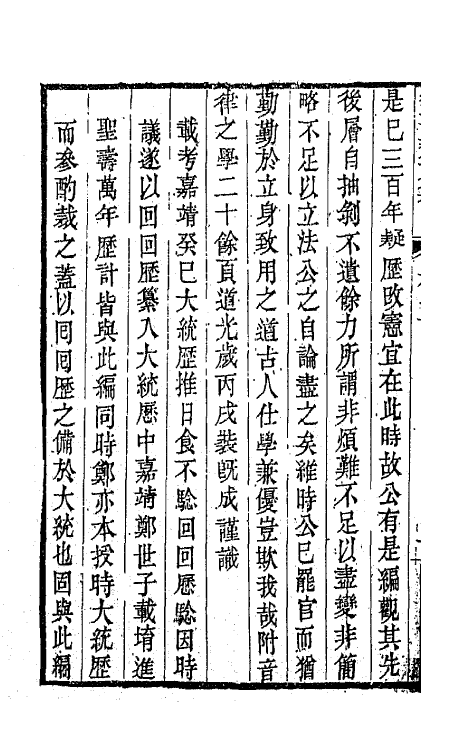 是已三百年疑歷改憲宜在此時故公有是編觀其先
後層自抽剝不遺餘力所謂非煩難不足以盡變非簡
略不足以立法公之自論盡之矣維時公已罷官而猶
勤勤於立身致用之道古人仕學兼優豈欺我哉附音
律之學二十餘頁道光歲丙戌裝旣成謹識
載考嘉靖癸巳大統歷推日食不驗回回歷驗因時
議遂以回回歷纂入大統歷中嘉靖鄭世子載堉進
聖壽萬年歷計皆與此編同時鄭亦本授時大統歷
而參酌裁之蓋以回回歷之備於大統也固與此編